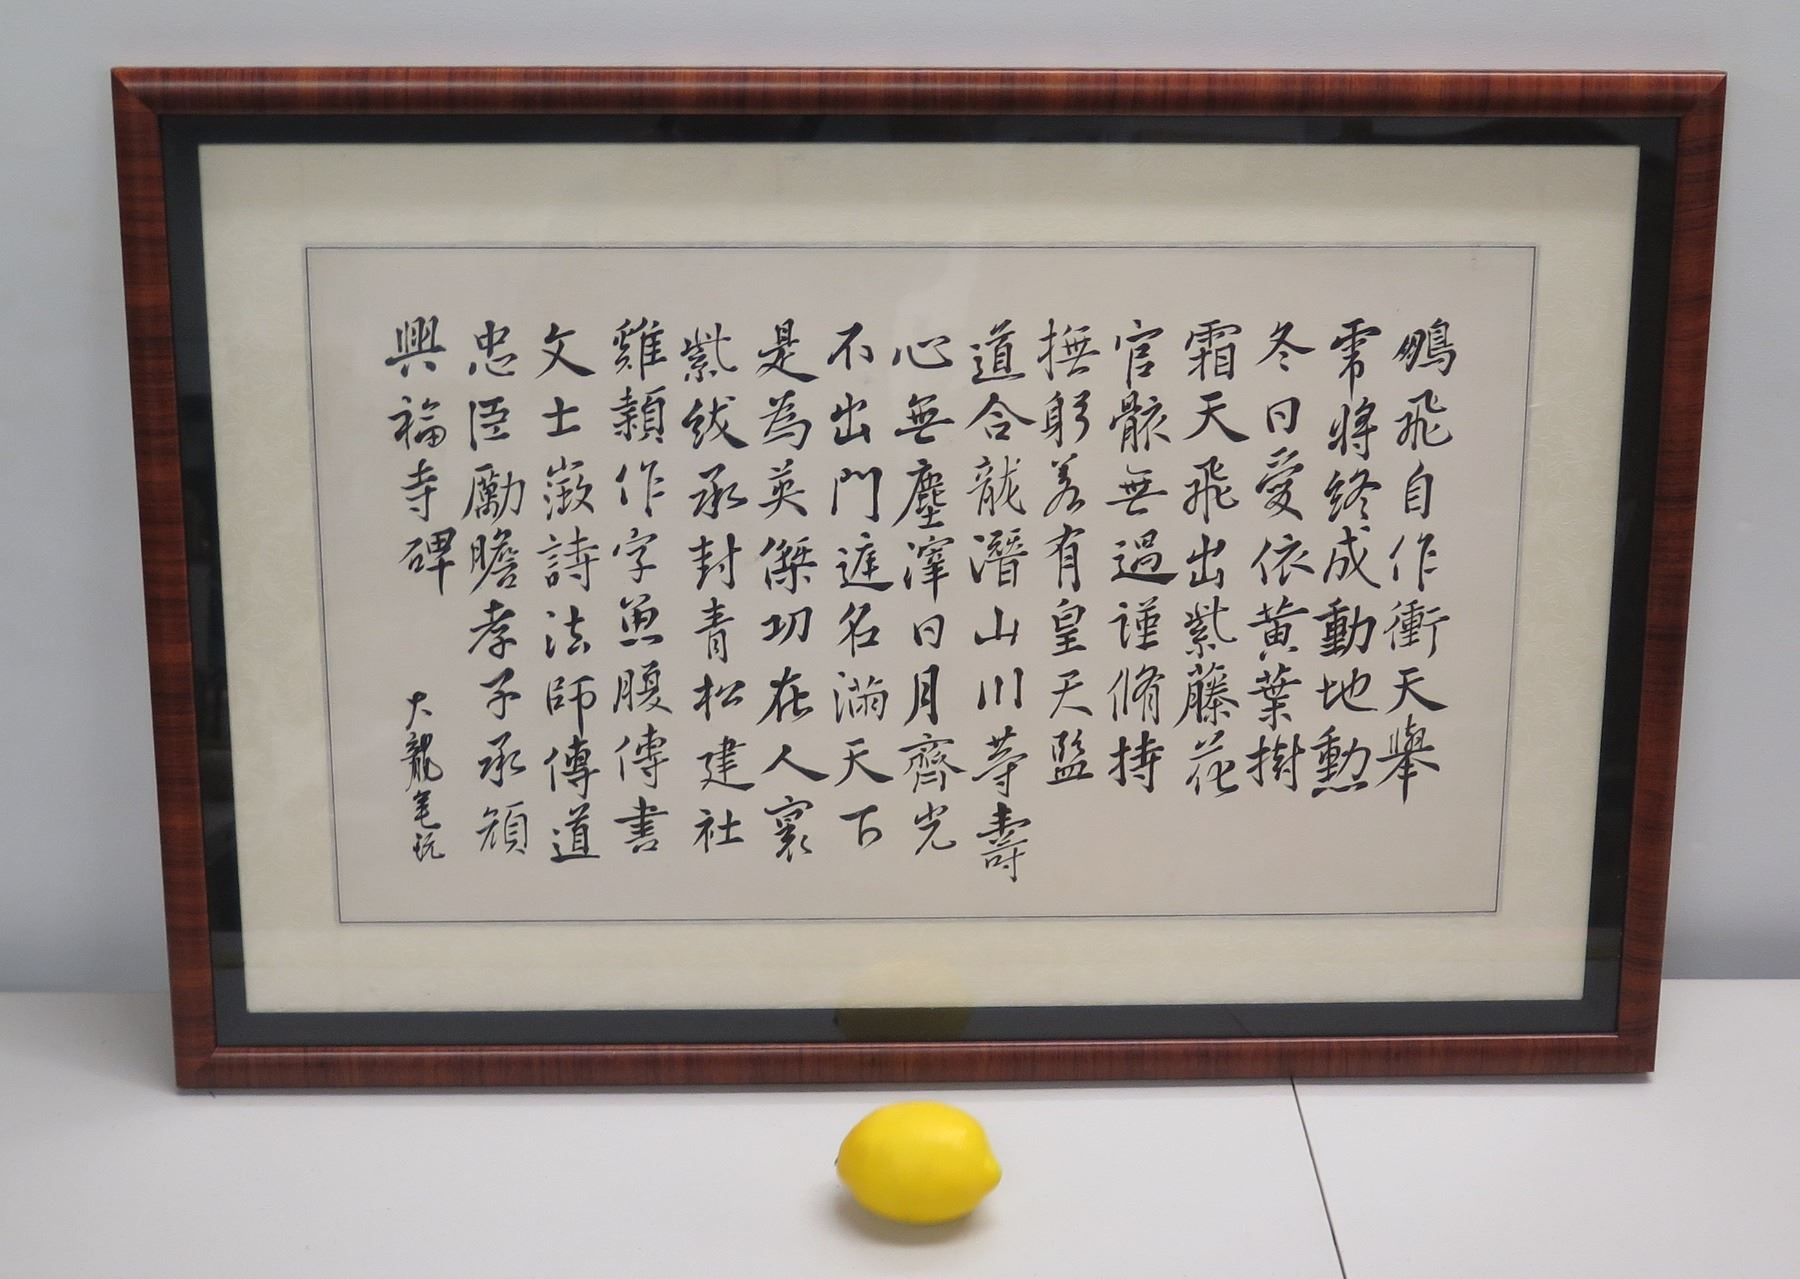 鵬飛自作衝天舉
常將終成動地勳
冬日愛依黃葉樹
霜天飛出紫藤花
官骸無過謹脩持
撫躬若有皇天監
道合龍潛山川等壽
心無塵滓日月齊光
不出門遮名滿天下
是為英傑功在人寰
紫紱承封青松建社
雞頴作字魚腹傳書
文士激詩法師傳道
忠臣勵膽孝子承顏
興福寺碑
大龍毫玩